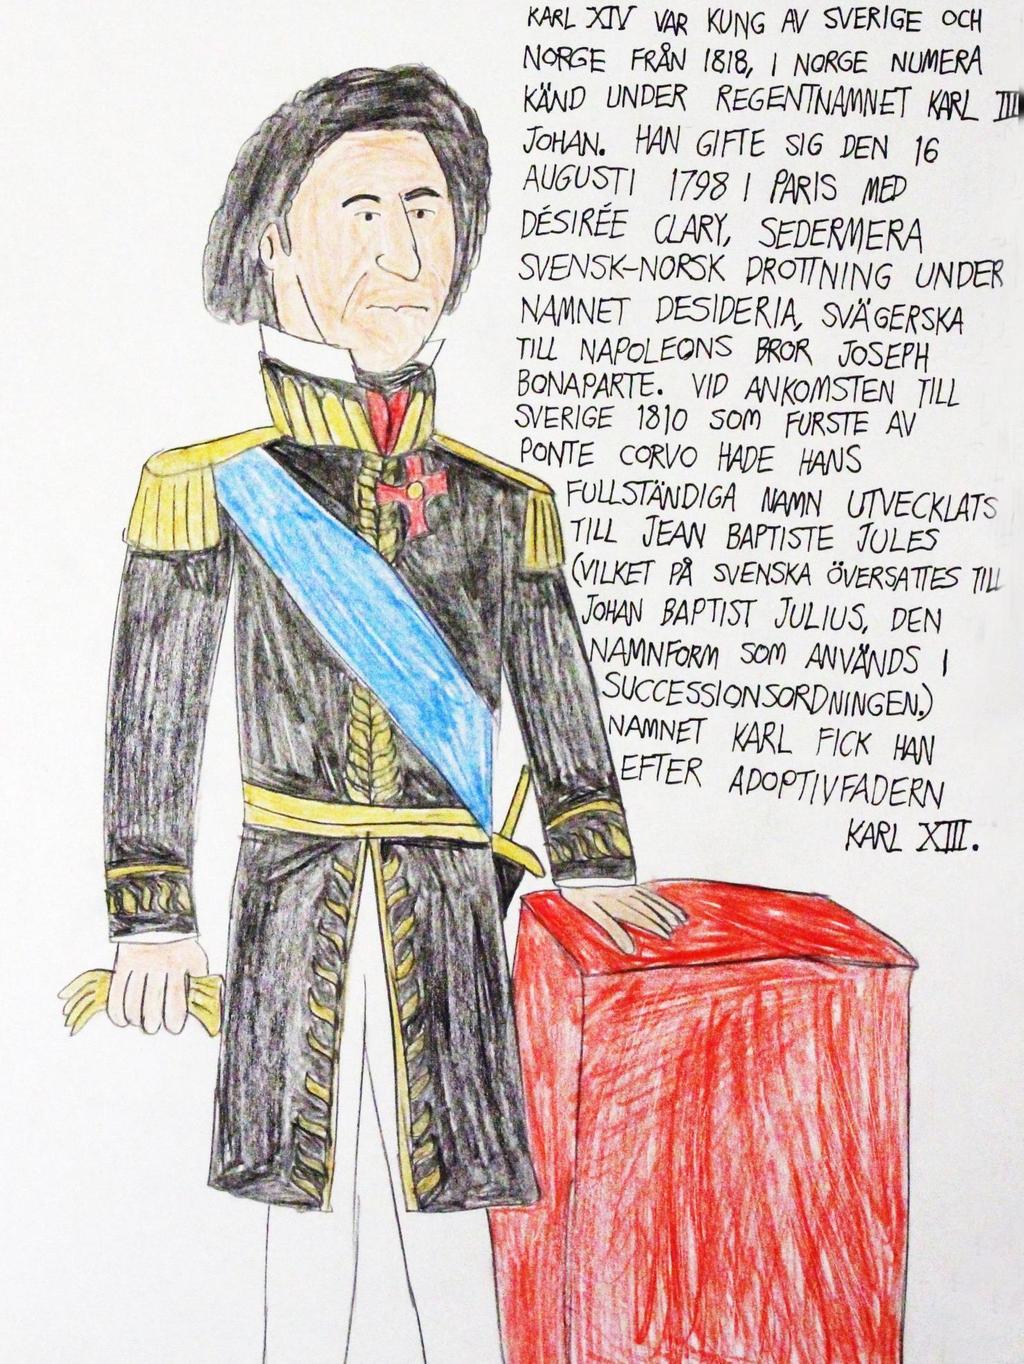 KARL XIV VAR KUNG AV SVERIGE OCH
NORGE FRÅN 1818, I NORGE NUMERA
KÄND UNDER REGENTNAMNET KARL III
JOHAN. HAN GIFTE SIG DEN 16
AUGUSTI 1798 I PARIS MED
DÉSIRÉE CLARY, SEDERMERA
SVENSK-NORSK DROTTNING UNDER
NAMNET DESIDERIA, SVÄGERSKA
TILL NAPOLEONS BROR JOSEPH
BONAPARTE. VID ANKOMSTEN TILL
SVERIGE 1810 SOM FURSTE AV
PONTE CORVO HADE HANS
FULLSTÄNDIGA NAMN UTVECKLATS
TILL JEAN BAPTISTE JULES
(VILKET PÅ SVENSKA ÖVERSATTES TILL
JOHAN BAPTIST JULIUS, DEN
NAMNFORM SOM ANVÄNDS I
SUCCESSIONSORDNINGEN.)
NAMNET KARL FICK HAN
EFTER ADOPTIVFADERN
KARL XIII.